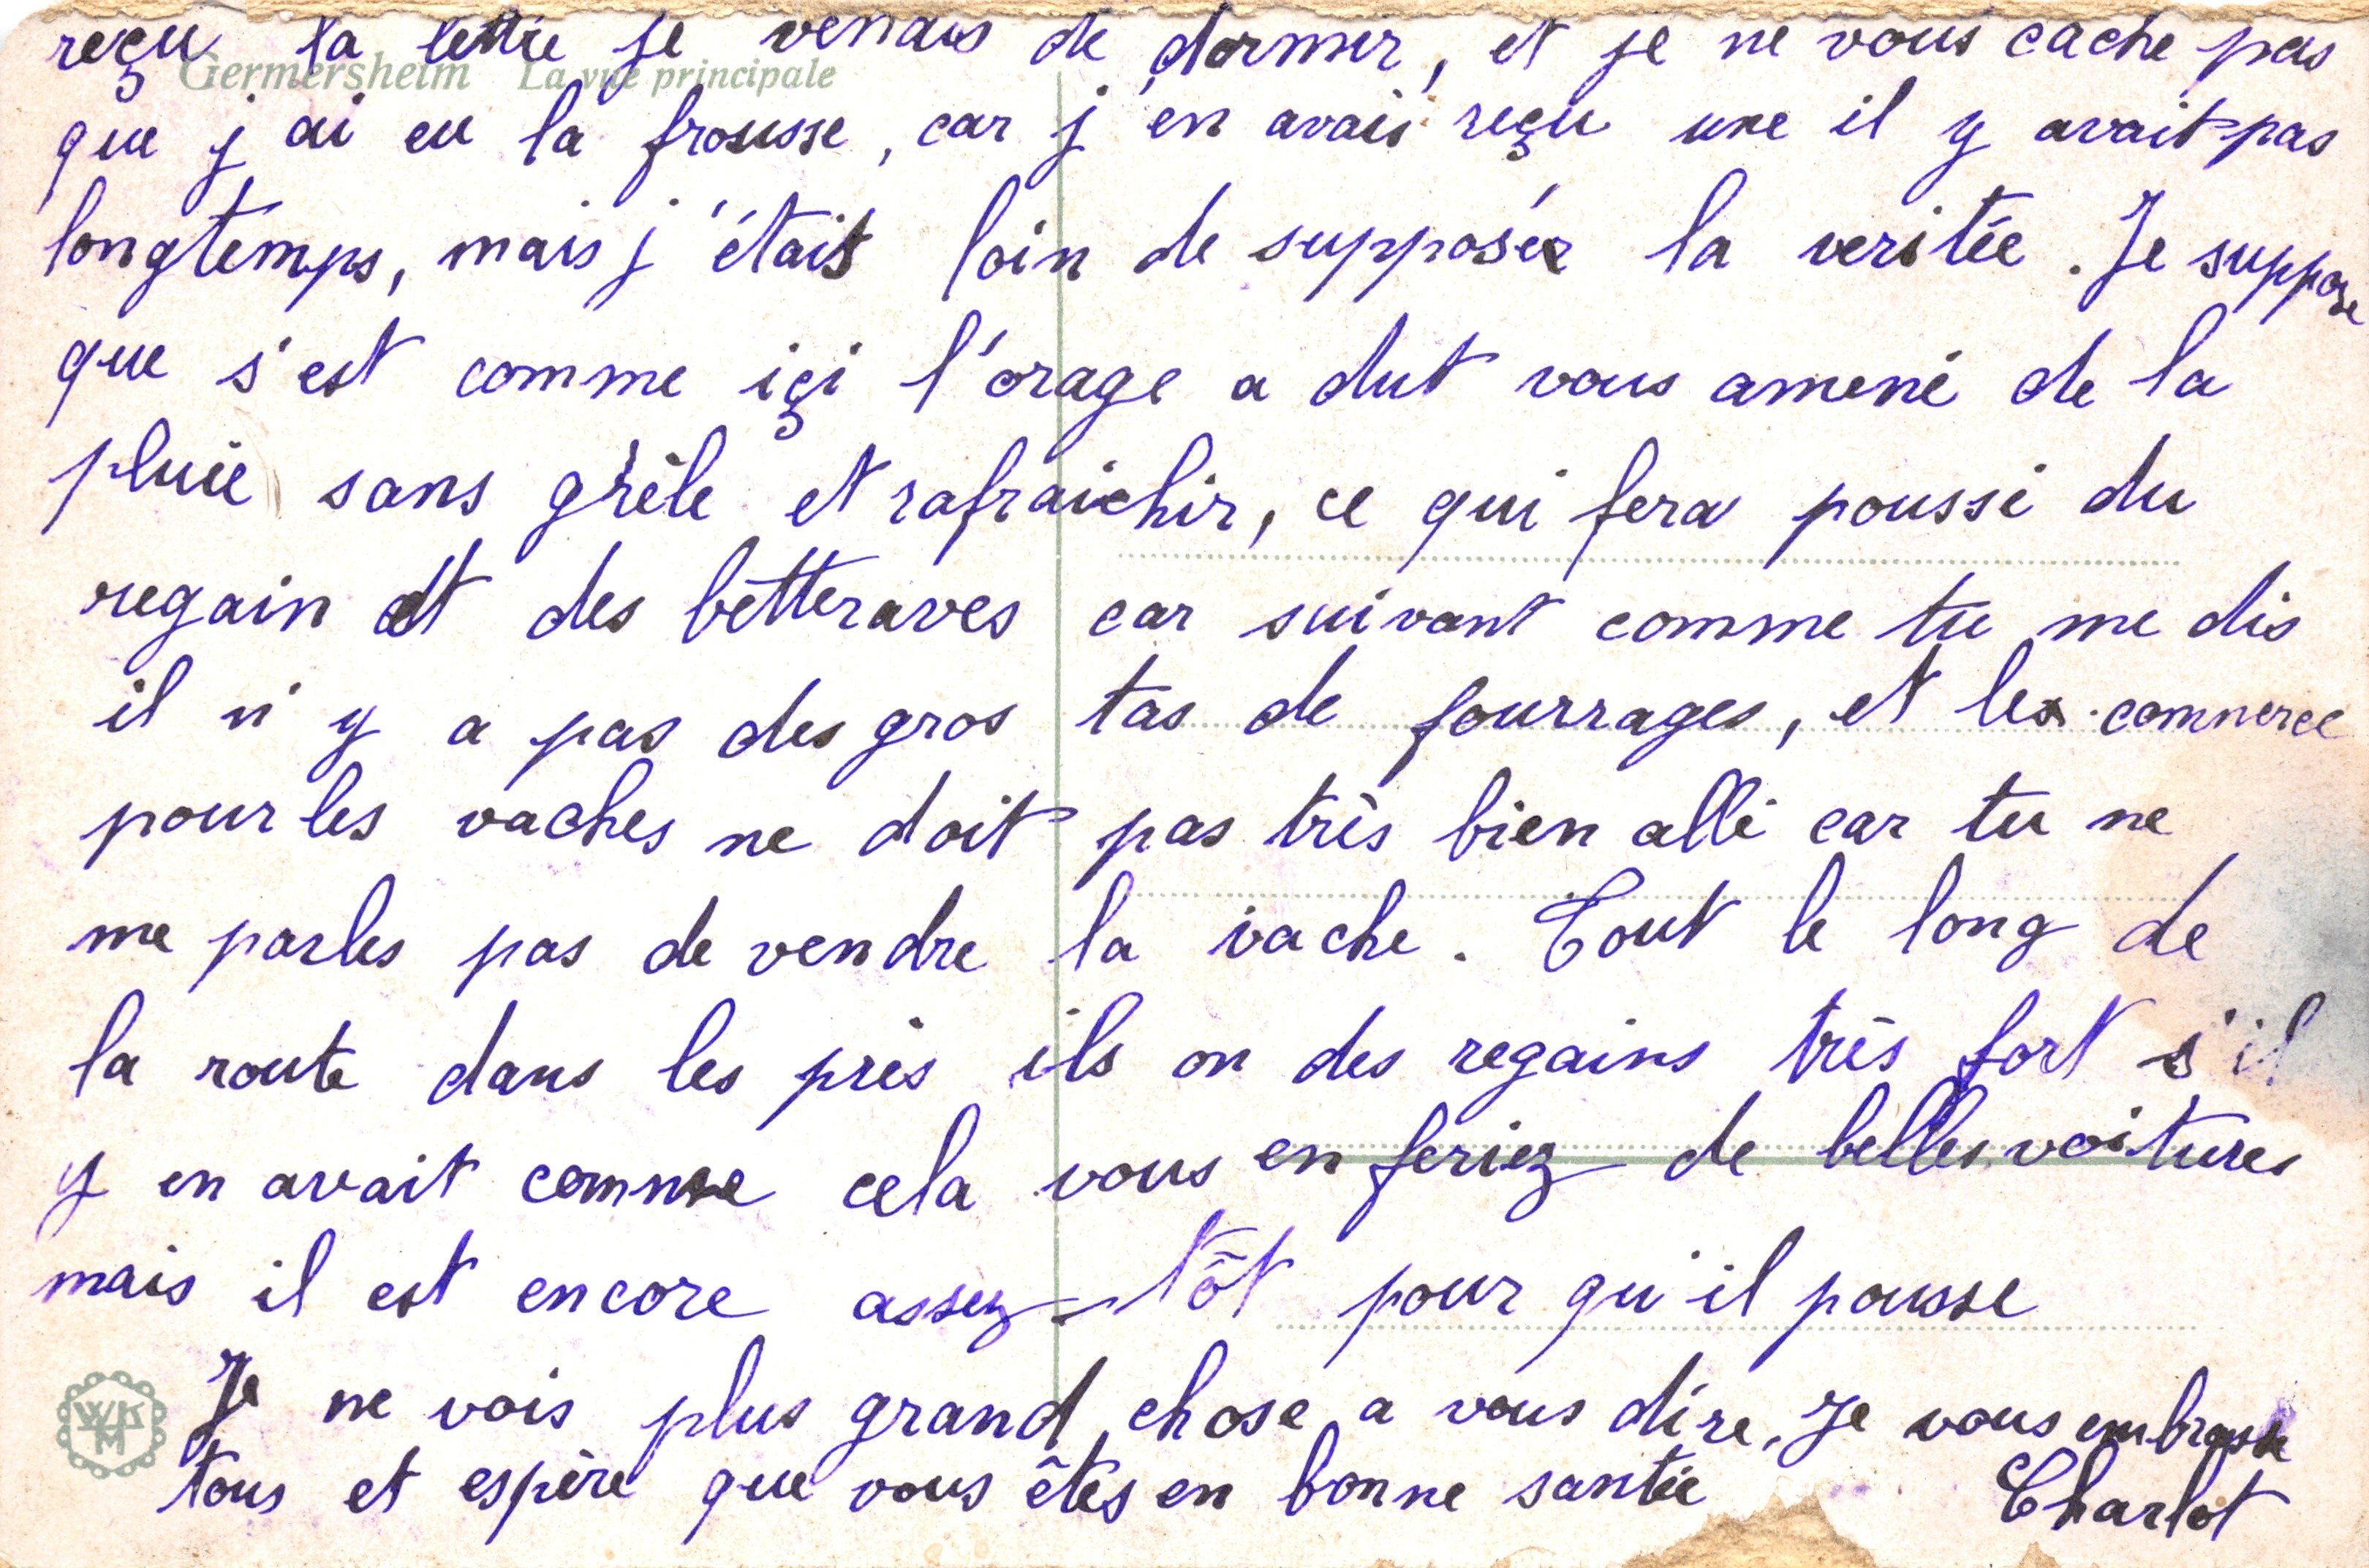 Germersheim La vue principale
reçu la lettre je venais de dormir, et je ne vous cache pas
que j'ai eu la frousse, car j'en avais reçu une il y avait pas
longtemps, mais j'étais loin de supposér la veritée. Je suppose
que s'est comme içi l'orage a dut vous amené de la
pluie sans grêle et rafraichir, ce qui fera poussé du
regain et des bêtteraves car suivant comme tu me dis
il n'y a pas des gros tas de fourrages, et le commerce
pour les vaches ne doit pas très bien allé car tu ne
me parles pas de vendre la vache. Tout le long de
la route dans les près ils on des regains très fort s'il
y en avait comme cela vous en feriez de belles voitures
mais il est encore assez tôt pour qu'il pousse
Je ne vois plus grand chose a vous dire. Je vous embrasse
tous et espère que vous êtes en bonne santée
Charlot
WKM